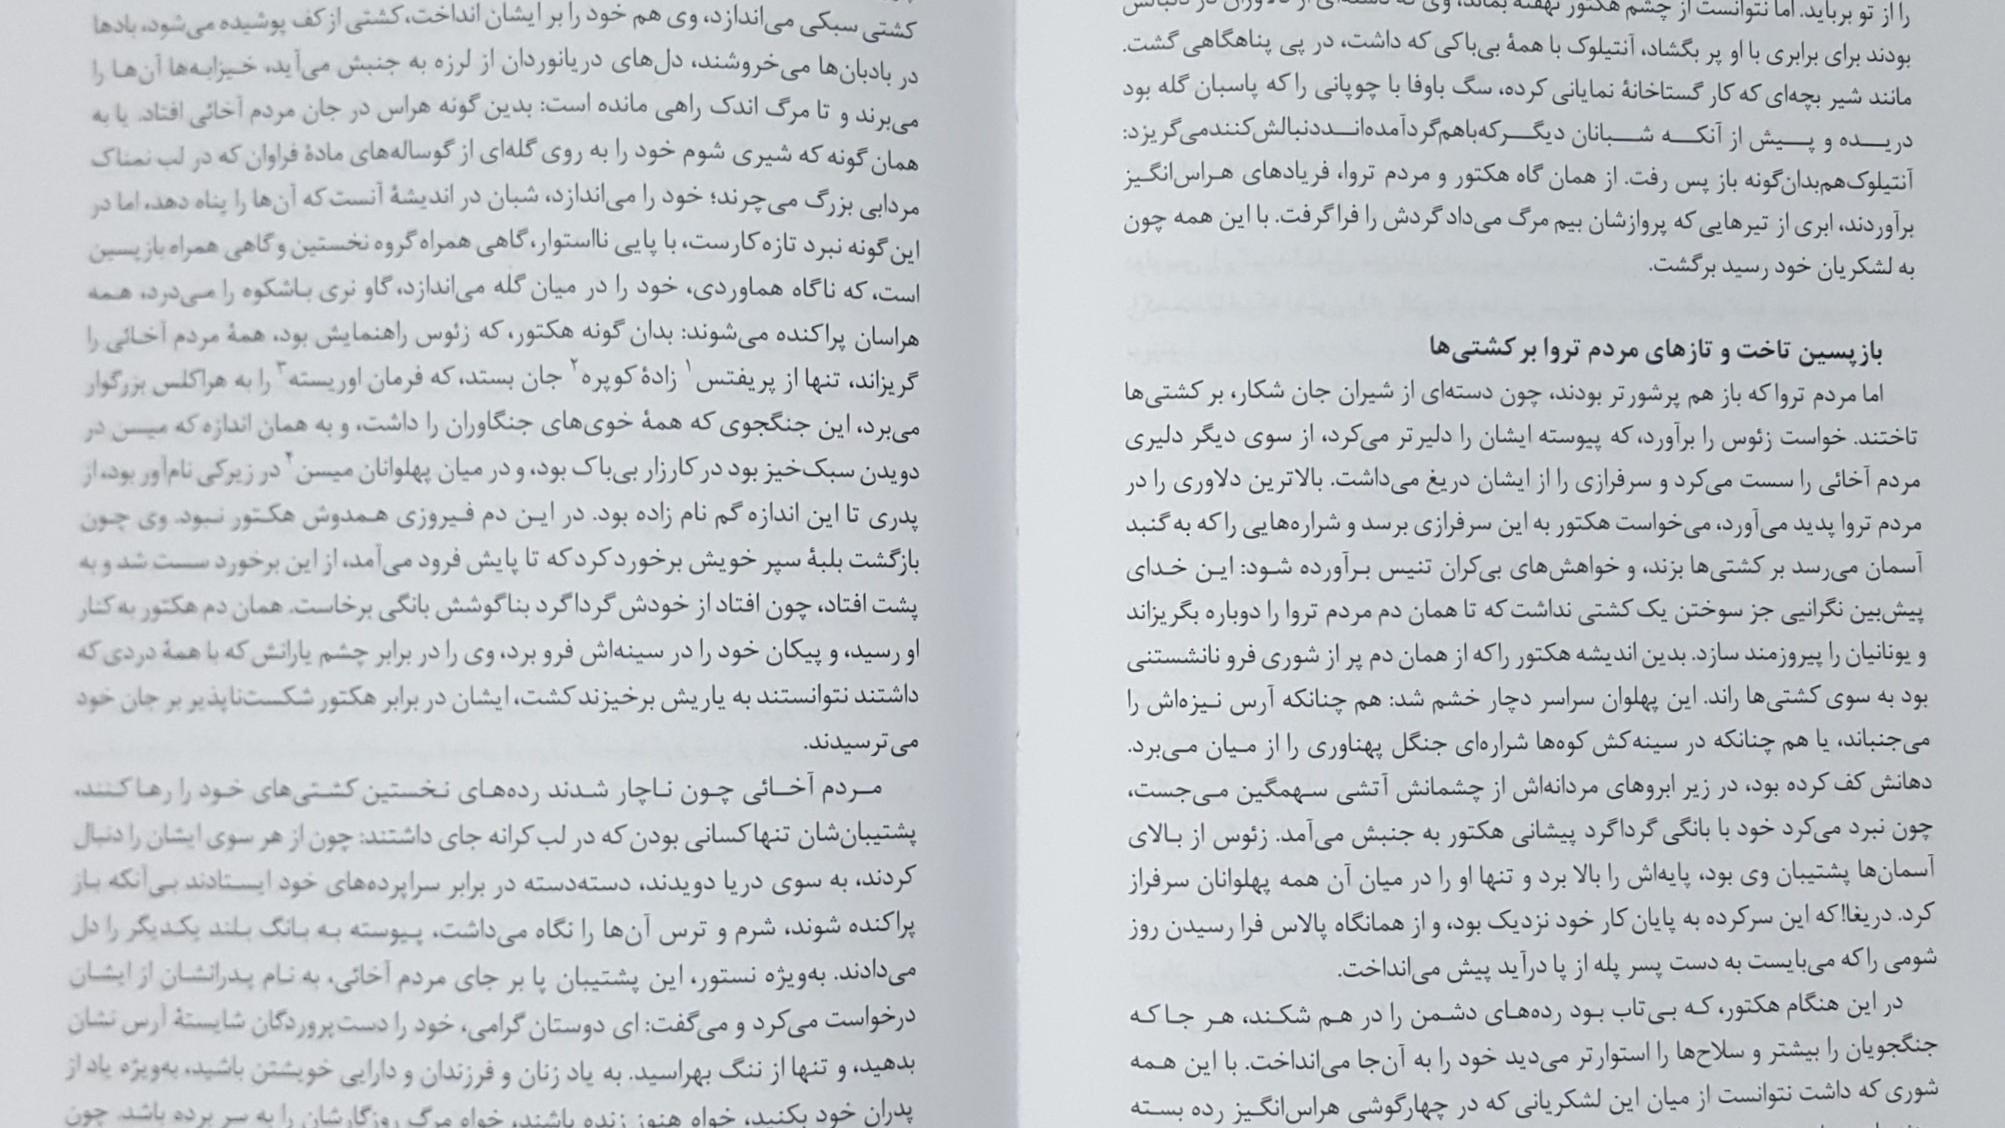 را از تو برباید. اما نتوانست از چشم هکتور نهفته بماند، وی که دسته‌ای از دلاوران در دنبالش
بودند برای برابری با او پر بگشاد، آنتیلوک با همهٔ بی‌باکی که داشت، در پی پناهگاهی گشت.
مانند شیر بچه‌ای که کار گستاخانهٔ نمایانی کرده، سگ باوفا با چوپانی را که پاسبان گله بود
دریده و پیش از آنکه شبانان دیگر که باهم گرد آمده‌اند دنبالش کنند می‌گریزد:
آنتیلوک هم بدان گونه باز پس رفت. از همان گاه هکتور و مردم تروا، فریادهای هراس‌انگیز
برآوردند، ابری از تیرهایی که پروازشان بیم مرگ می‌داد گردش را فرا گرفت. با این همه چون
به لشکریان خود رسید برگشت.
بازپسین تاخت و تازهای مردم تروا بر کشتی‌ها
اما مردم تروا که باز هم پرشورتر بودند، چون دسته‌ای از شیران جان شکار، بر کشتی‌ها
تاختند. خواست زئوس را برآورد، که پیوسته ایشان را دلیرتر می‌کرد، از سوی دیگر دلیری
مردم آخائی را سست می‌کرد و سرفرازی را از ایشان دریغ می‌داشت. بالاترین دلاوری را در
مردم تروا پدید می‌آورد، می‌خواست هکتور به این سرفرازی برسد و شراره‌هایی را که به گنبد
آسمان می‌رسد بر کشتی‌ها بزند، و خواهش‌های بی‌کران تتیس برآورده شود: این خدای
پیش‌بین نگرانیی جز سوختن یک کشتی نداشت که تا همان دم مردم تروا را دوباره بگریزاند
و یونانیان را پیروزمند سازد. بدین اندیشه هکتور را که از همان دم پر از شوری فرو نانشستنی
بود به سوی کشتی‌ها راند. این پهلوان سراسر دچار خشم شد: هم چنانکه آرس نیزه‌اش را
می‌جنباند، یا هم چنانکه در سینه‌کش کوه‌ها شراره‌ای جنگل پهناوری را از میان می‌برد.
دهانش کف کرده بود، در زیر ابروهای مردانه‌اش از چشمانش آتشی سهمگین می‌جست،
چون نبرد می‌کرد خود با بانگی گرداگرد پیشانی هکتور به جنبش می‌آمد. زئوس از بالای
آسمان‌ها پشتیبان وی بود، پایه‌اش را بالا برد و تنها او را در میان آن همه پهلوانان سرفراز
کرد. دریغا! که این سرکرده به پایان کار خود نزدیک بود، و از همانگاه پالاس فرا رسیدن روز
شومی را که می‌بایست به دست پسر پله از پا درآید پیش می‌انداخت.
در این هنگام هکتور، که بی‌تاب بود رده‌های دشمن را در هم شکند، هر جا که
جنگجویان را بیشتر و سلاح‌ها را استوارتر می‌دید خود را به آن‌جا می‌انداخت. با این همه
شوری که داشت نتوانست از میان این لشکریانی که در چهارگوشی هراس‌انگیز رده بسته
کشتی سبکی می‌اندازد، وی هم خود را بر ایشان انداخت، کشتی از کف پوشیده می‌شود، بادها
در بادبان‌ها می‌خروشند، دل‌های دریانوردان از لرزه به جنبش می‌آید، خیزابه‌ها آن‌ها را
می‌برند و تا مرگ اندک راهی مانده است: بدین گونه هراس در جان مردم آخائی افتاد. یا به
همان گونه که شیری شوم خود را به روی گله‌ای از گوساله‌های مادهٔ فراوان که در لب نمناک
مردابی بزرگ می‌چرند؛ خود را می‌اندازد، شبان در اندیشهٔ آنست که آن‌ها را پناه دهد، اما در
این گونه نبرد تازه کارست، با پایی نااستوار، گاهی همراه گروه نخستین و گاهی همراه بازپسین
است، که ناگاه هماوردی، خود را در میان گله می‌اندازد، گاو نری باشکوه را می‌درد، همه
هراسان پراکنده می‌شوند: بدان گونه هکتور، که زئوس راهنمایش بود، همهٔ مردم آخائی را
گریزاند، تنها از پریفتس۱ زادهٔ کوپره۲ جان بستد، که فرمان اوریسته۳ را به هراکلس بزرگوار
می‌برد، این جنگجوی که همهٔ خوی‌های جنگاوران را داشت، و به همان اندازه که میسن در
دویدن سبک‌خیز بود در کارزار بی‌باک بود، و در میان پهلوانان میسن۴ در زیرکی نام‌آور بود، از
پدری تا این اندازه گم نام زاده بود. در این دم فیروزی همدوش هکتور نبود. وی چون
بازگشت بلبهٔ سپر خویش برخورد کرد که تا پایش فرود می‌آمد، از این برخورد سست شد و به
پشت افتاد، چون افتاد از خودش گرداگرد بناگوشش بانگی برخاست. همان دم هکتور به کنار
او رسید، و پیکان خود را در سینه‌اش فرو برد، وی را در برابر چشم یارانش که با همهٔ دردی که
داشتند نتوانستند به یاریش برخیزند کشت، ایشان در برابر هکتور شکست‌ناپذیر بر جان خود
می‌ترسیدند.
مردم آخائی چون ناچار شدند رده‌های نخستین کشتی‌های خود را رها کنند،
پشتیبان‌شان تنها کسانی بودن که در لب کرانه جای داشتند: چون از هر سوی ایشان را دنبال
کردند، به سوی دریا دویدند، دسته‌دسته در برابر سراپرده‌های خود ایستادند بی‌آنکه باز
پراکنده شوند، شرم و ترس آن‌ها را نگاه می‌داشت، پیوسته به بانگ بلند یکدیگر را دل
می‌دادند. به‌ویژه نستور، این پشتیبان پا بر جای مردم آخائی، به نام پدرانشان از ایشان
درخواست می‌کرد و می‌گفت: ای دوستان گرامی، خود را دست‌پروردگان شایستهٔ آرس نشان
بدهید، و تنها از ننگ بهراسید. به یاد زنان و فرزندان و دارایی خویشتن باشید، به‌ویژه یاد از
پدران خود بکنید، خواه هنوز زنده باشند، خواه مرگ روزگارشان را به سر برده باشد. چون